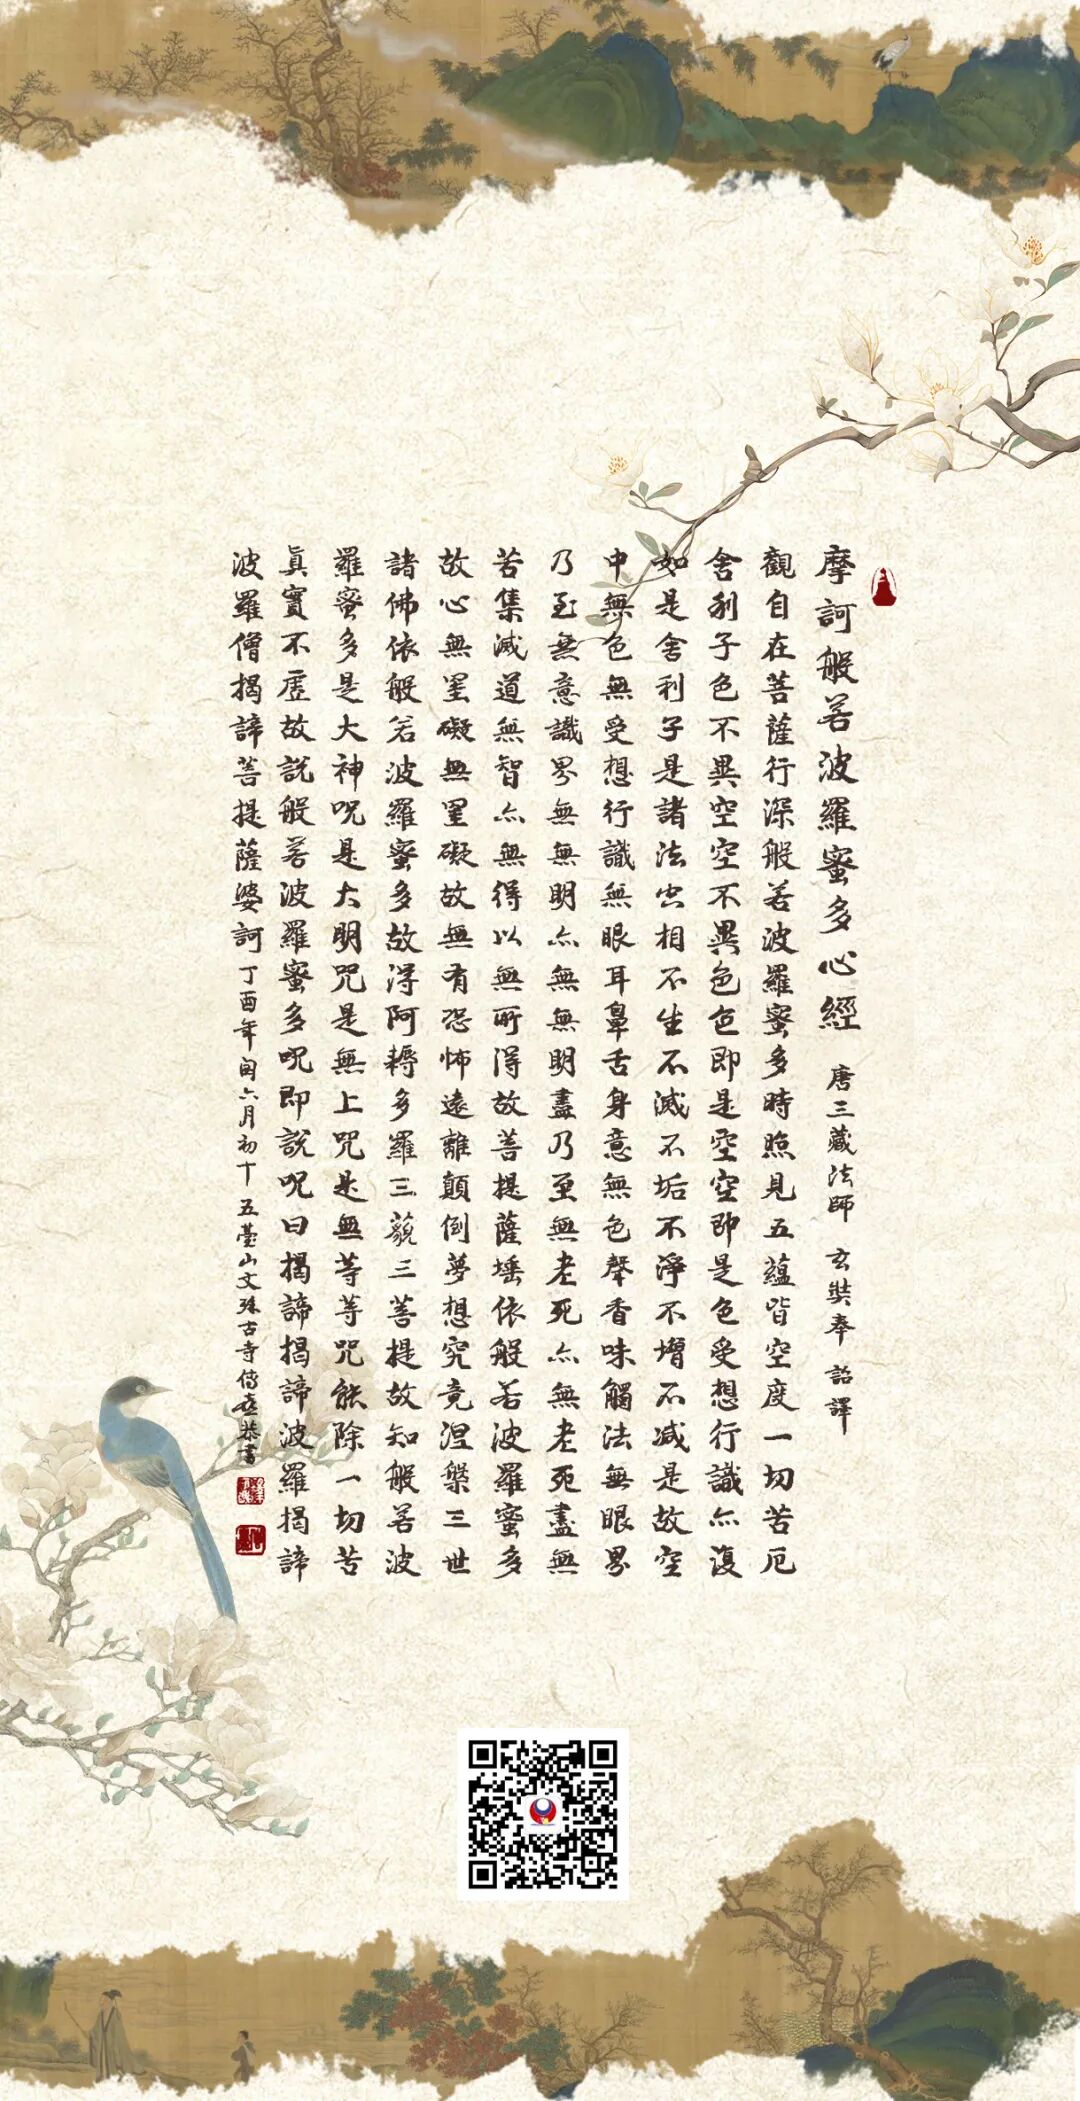 摩訶般若波羅蜜多心經 唐三藏法師 玄奘奉 詔譯
觀自在菩薩行深般若波羅蜜多時照見五蘊皆空度一切苦厄
舍利子色不異空空不異色色即是空空即是色受想行識亦復
如是舍利子是諸法空相不生不滅不垢不淨不增不減是故空
中無色無受想行識無眼耳鼻舌身意無色聲香味觸法無眼界
乃至無意識界無無明亦無無明盡乃至無老死亦無老死盡無
苦集滅道無智亦無得以無所得故菩提薩埵依般若波羅蜜多
故心無罣礙無罣礙故無有恐怖遠離顛倒夢想究竟涅槃三世
諸佛依般若波羅蜜多故得阿耨多羅三藐三菩提故知般若波
羅蜜多是大神咒是大明咒是無上咒是無等等咒能除一切苦
真實不虛故說般若波羅蜜多咒即說咒曰揭諦揭諦波羅揭諦
波羅僧揭諦菩提薩婆訶 丁酉年閏六月初十 五臺山文殊古寺恭書